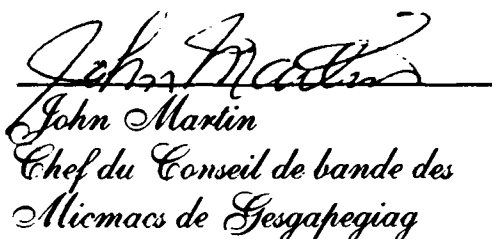 John Martin
John Martin
Chef du Conseil de bande des
Micmacs de Gesgapegiag